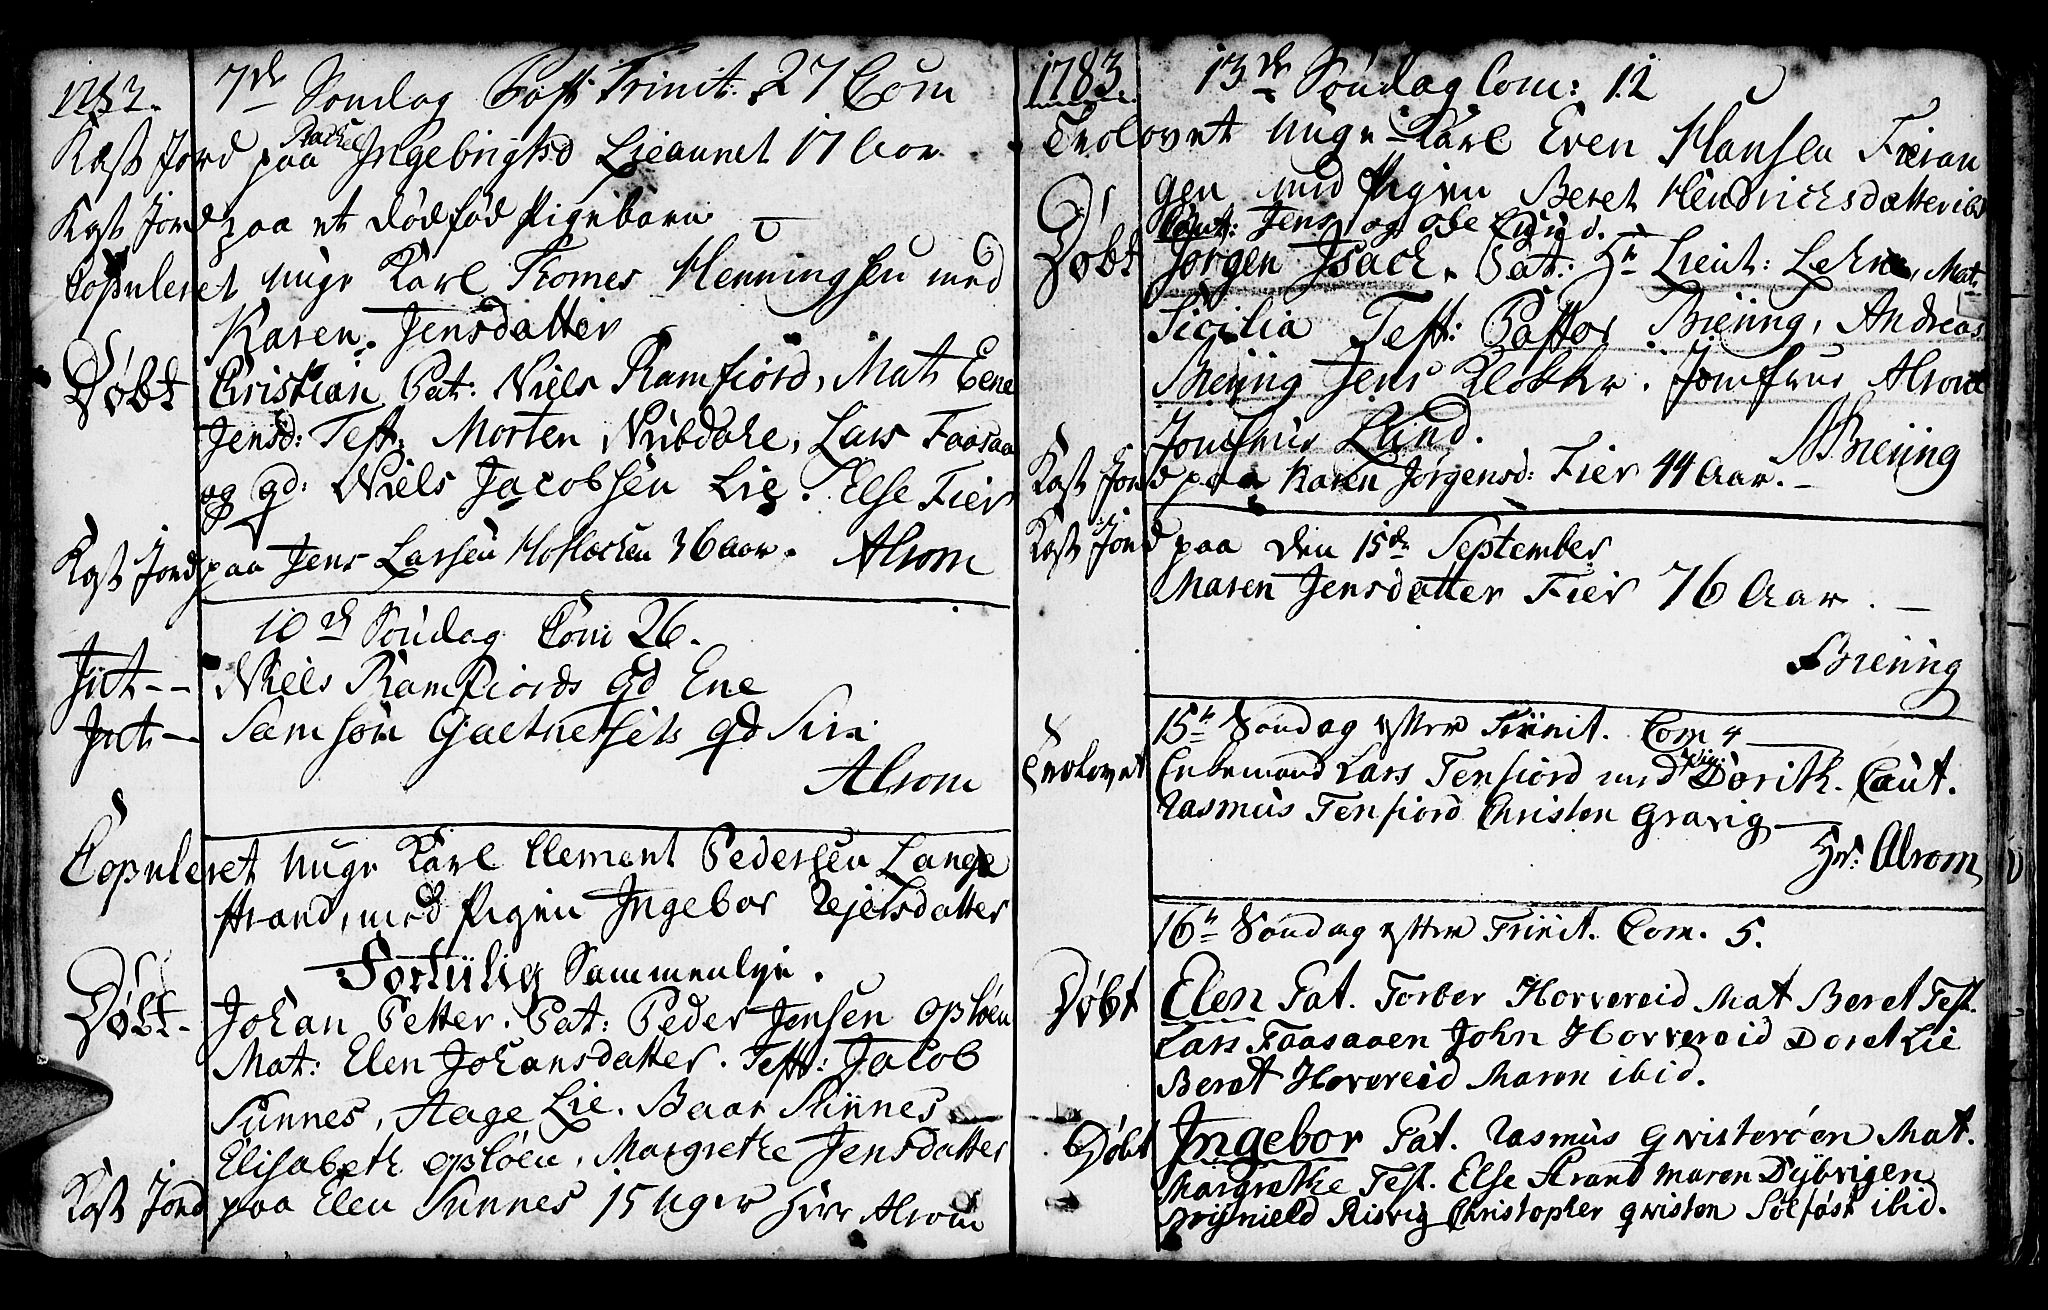 1783. 7de Søndag Post Trinit: 27 Com
Kast Jord paa Rachel Ingebrigtsd Lieaunet 17 Aar
Kast Jord paa et dødfød Pigebarn —
Copuleret unge Karl Thomes Henningsen med
Karen Jensdatter
Døbt Christian Pat: Niels Ramfiord, Mat. Ene
Jensd: Test: Morten Nubdahl, Lars Faasaa
og qd: Niels Jacobsen Lie. Else Fier
Kast Jord paa Jens Larsen Hoflochen 36 aar. Alrom
10de Søndag Com 26.
Int-- Niels Ramfiords qd Ene
Int-- Samson qd Siri
Alrom
Copuleret unge Karl Clement Pedersen Lange
strand, med Pigen Ingebor Rejersdatter
Fortiilig Sammenleje.
Døbt- Johan Petter. Pat: Peder Jensen Opløen
Mat: Elen Johansdatter. Test: Jacob
Sunnes, Aage Lie. Baar Sunnes
Elisabeth Opløen, Margrethe Jensdatter
Kast Jord paa Elen Sunnes 15 Uger Herr Alrom
1783. 13de Søndag Com: 12
Trolovet unge Karl Even Hansen Fieran
gen med Pigen Beret Hendrichsdatter ibd
Caut: Jens og Ole
Døbt Jørgen Isach. Pat: Hr Lieut: Mat.
Sicilia Test: Pastor Breiing, Andreas
Breiing Jens Klokker. Jomfrue Alrom
Jomfrue Lund. Breiing
Kast Jord paa Karen Jørgensd: Fier 44 Aar. —
Kast Jord paa den 15de September
Maren Jensdatter Fier 76 Aar. —
Breiing
15de Søndag efter Triinit. Com 4
Trolovet Enkemand Lars Tenfiord med Pig: Dorith. Caut.
Rasmus Tenfiord Christen Gravig —
Hr: Alrom
16de Søndag efter Triinit. Com. 5.
Døbt Elen Pat. Torber Horvereid Mat Beret Test.
Lars Faasaaen John Horvereid Doret Lie
Beret Horvereid Maren ibid.
Døbt Ingebor Pat. Rasmus Qvisterøen Mat.
Margrethe Test. Else Strand Maren Dybvigen
Risvig Christopher Qvisten Solføst ibid.